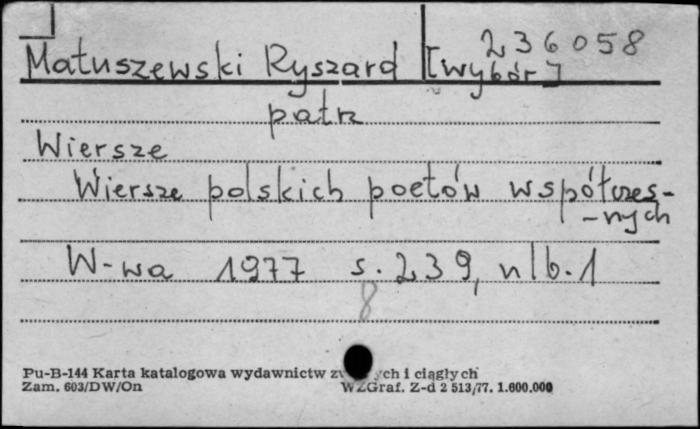 236058
Matuszewski Ryszard [wybór]
patrz
Wiersze
Wiersze polskich poetów współczes-
-nych
W-wa 1977 s. 239, nlb. 1
8
Pu-B-144 Karta katalogowa wydawnictw ych i ciągłych
Zam. 603/DW/On WZGraf. Z-d 2 513/77. 1.600.000